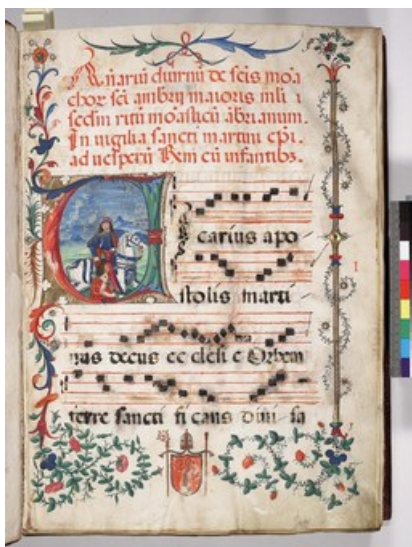 diurnū de scīs
chor scī ambrij maioris mlī
scdm ritū mōasticū ābrianum.
In uigilia sancti martini epi.
ad uesperū Rem cū infantibz.
carius apo
stolis marti
nus decus ec clesi e Orbem
terre sancti fi cans diui sa